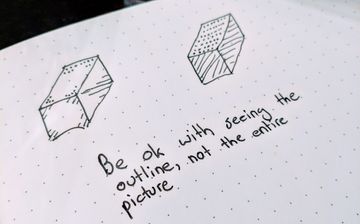 Be ok with seeing the
outline, not the entire
picture